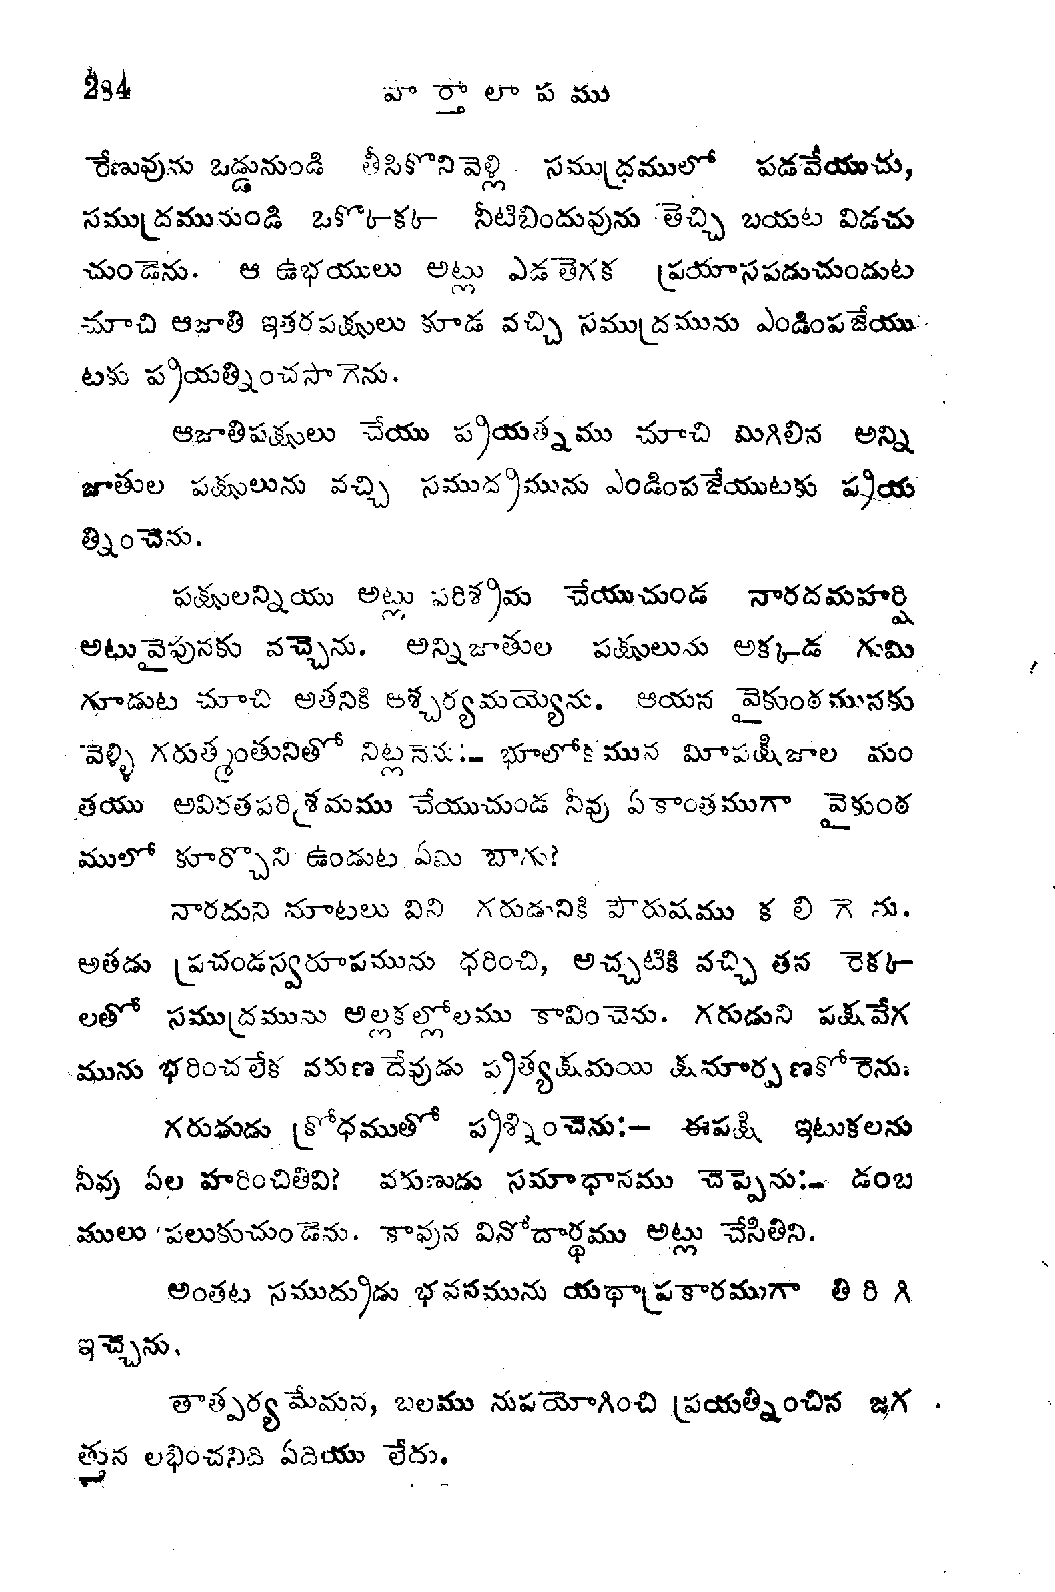 284
వా ర్తా లా ప ము
రేణువును ఒడ్డునుండి తీసికొనివెళ్లి సముద్రములో పడవేయుచు,
సముద్రమునుండి ఒకొక్కక్క నీటిబిందువును తెచ్చి బయట విడచు
చుండెను. ఆ ఉభయులు అట్లు ఎడతెగక ప్రయాసపడుచుండుట
చూచి ఆజాతి ఇతరపక్షులు కూడ వచ్చి సముద్రమును ఎండింపజేయు
టకు ప్రయత్నించసాగెను.
ఆజాతిపక్షులు చేయు ప్రయత్నము చూచి మిగిలిన అన్ని
జాతుల పక్షులును వచ్చి సముద్రమును ఎండింపజేయుటకు ప్రయ
త్నించెను.
పక్షులన్నియు అట్లు పరిశ్రమ చేయుచుండ నారదమహర్షి
అటువైపునకు వచ్చెను. అన్నిజాతుల పక్షులును అక్కడ గుమి
గూడుట చూచి అతనికి ఆశ్చర్యమయ్యెను. ఆయన వైకుంఠమునకు
వెళ్ళి గరుత్మంతునితో నిట్లనెను:– భూలోకమున మీపక్షిజాల మం
తయు అవిరతపరిశ్రమము చేయుచుండ నీవు ఏకాంతముగా వైకుంఠ
ములో కూర్చొని ఉండుట ఏమి బాగు?
నారదుని మాటలు విని గరుడునికి పౌరుషము క లి గె ను.
అతడు ప్రచండస్వరూపమును ధరించి, అచ్చటికి వచ్చి తన రెక్క
లతో సముద్రమును అల్లకల్లోలము కావించెను. గరుడుని పక్షవేగ
మును భరించలేక వరుణదేవుడు ప్రత్యక్షమయి క్షమార్పణకోరెను.
గరుడుడు క్రోధముతో ప్రశ్నించెను:– ఈపక్షి ఇటుకలను
నీవు ఏల హరించితివి? వరుణుడు సమాధానము చెప్పెను:– డంబ
ములు పలుకుచుండెను. కావున వినోదార్థము అట్లు చేసితిని.
అంతట సముద్రుడు భవనమును యథాప్రకారముగా తి రి గి
ఇచ్చెను.
తాత్పర్యమేమన, బలము నుపయోగించి ప్రయత్నించిన జగ
త్తున లభించనిది ఏదియు లేదు.